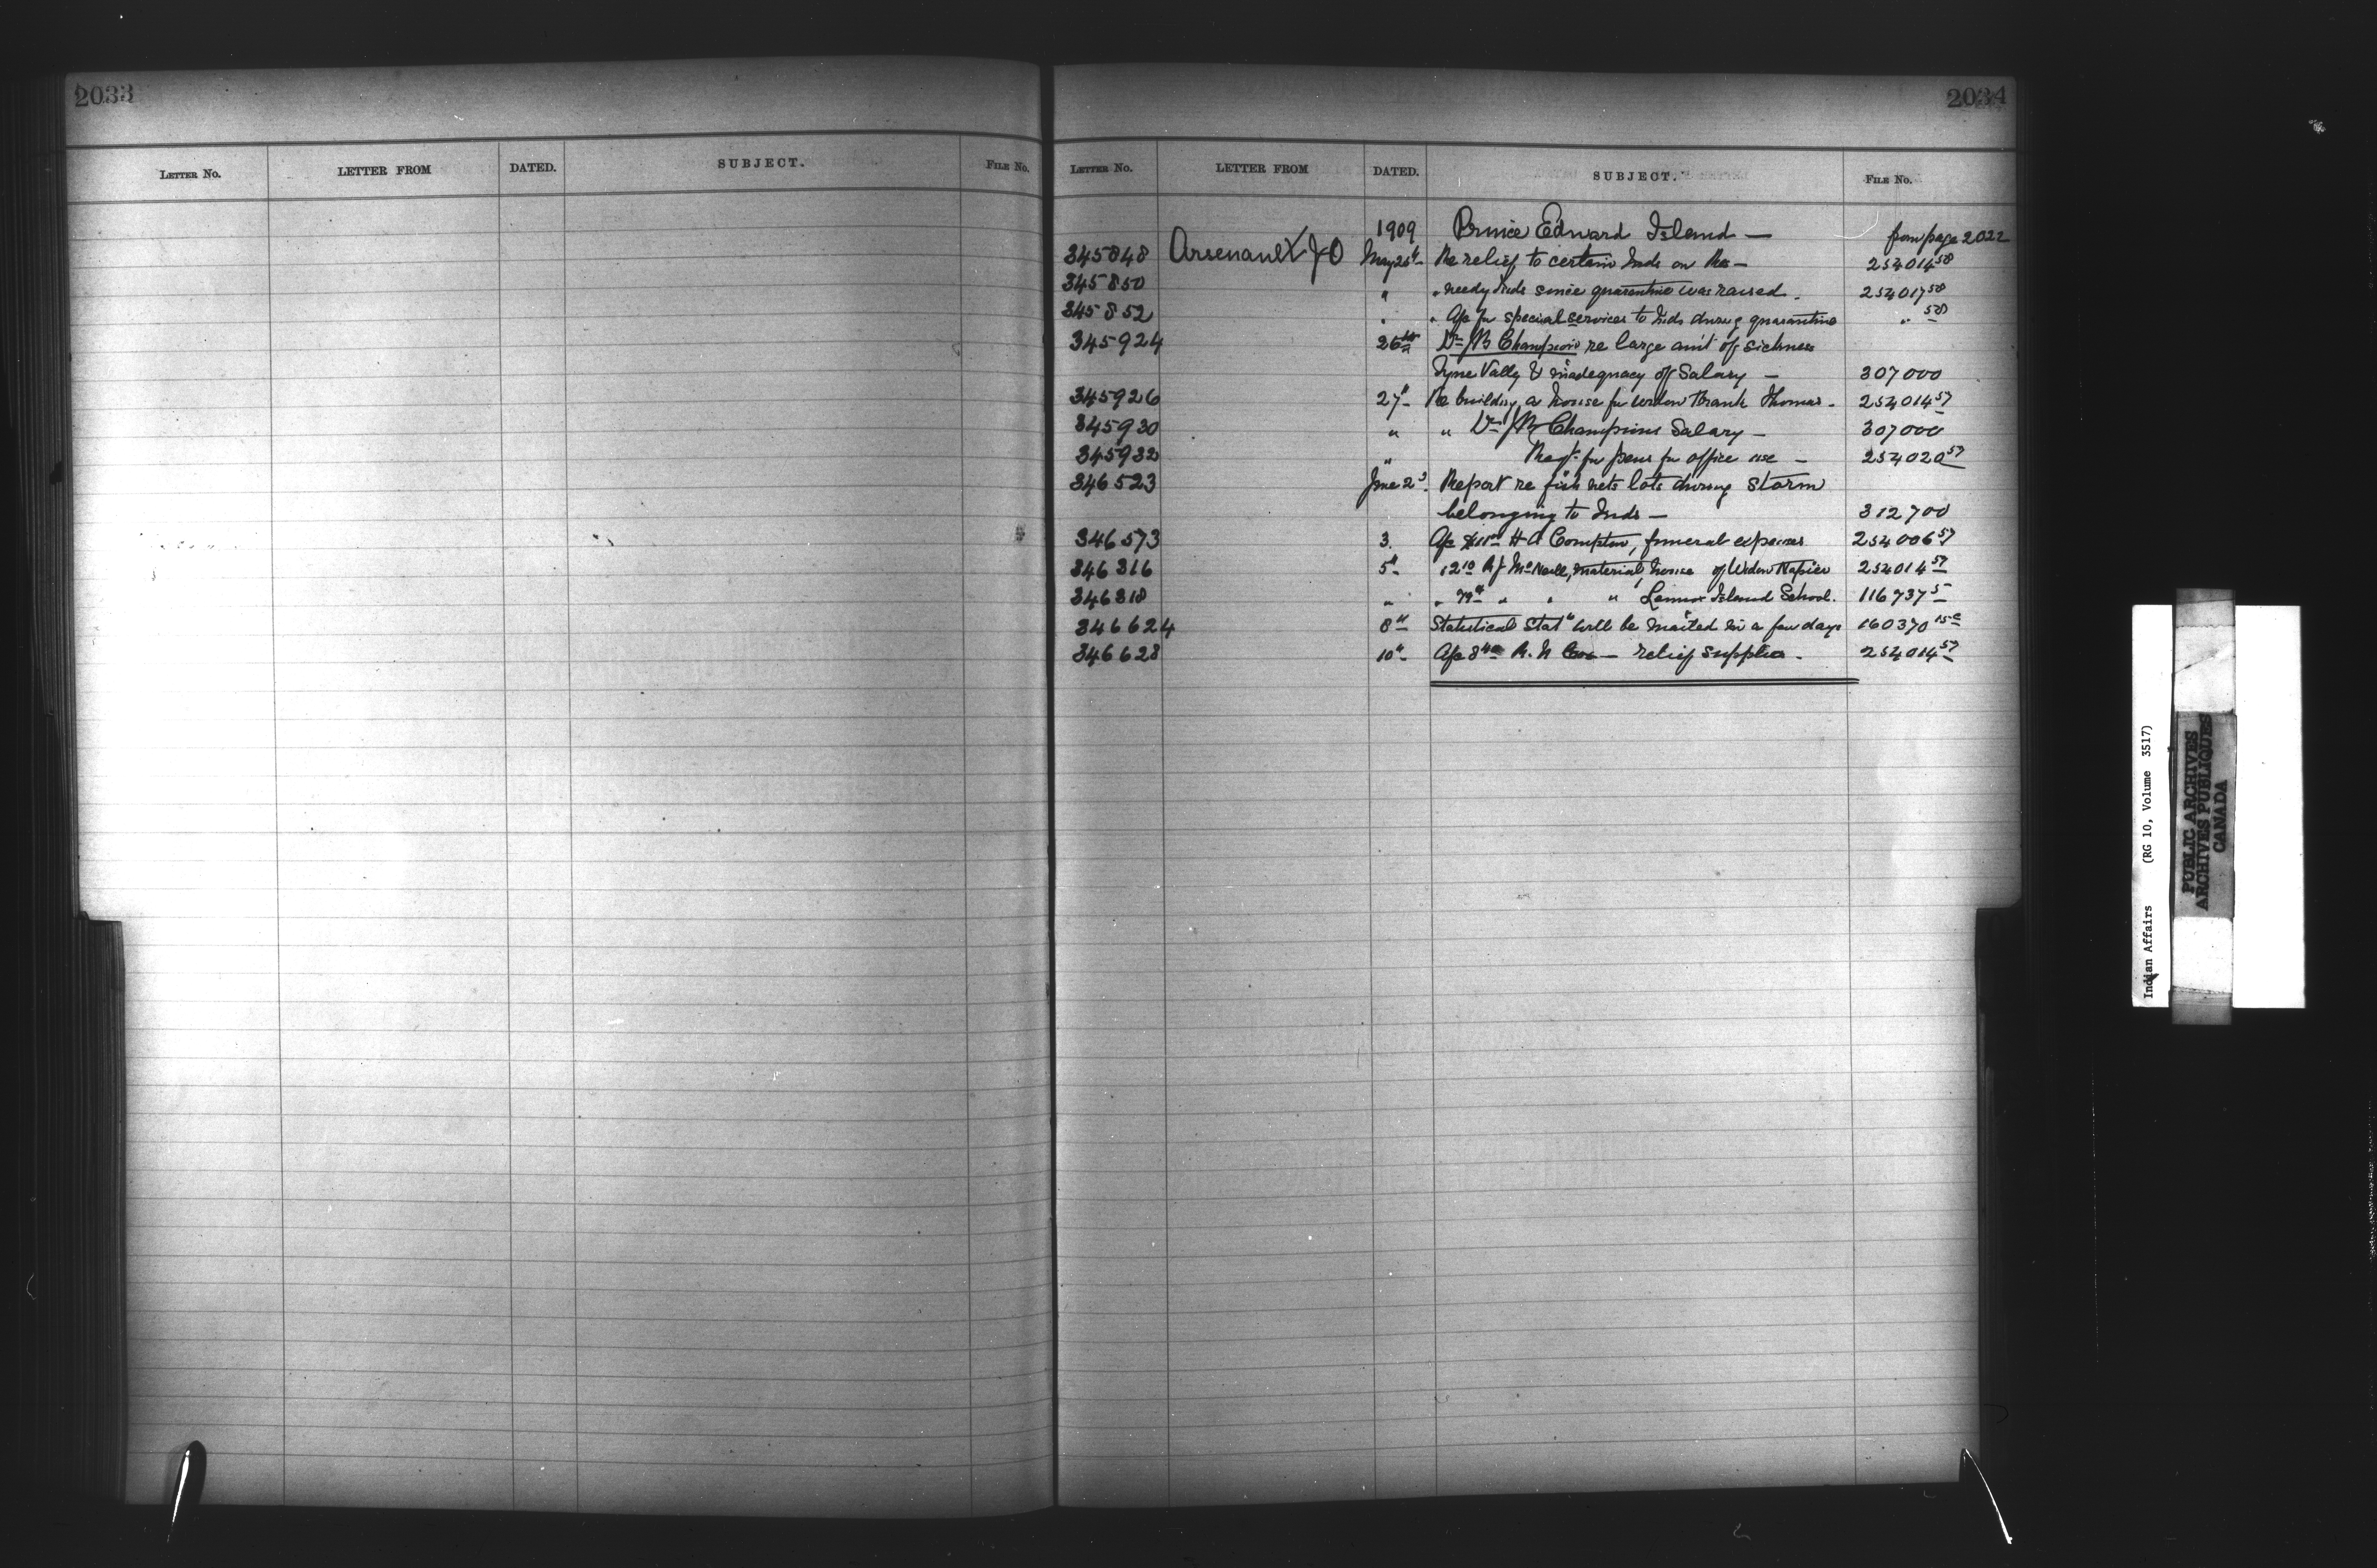 2033
LETTER No. LETTER FROM DATED. SUBJECT. FILE No.
2034
LETTER No. LETTER FROM DATED. SUBJECT. FILE No.
1909 Prince Edward Island — from page 2022
345848 Arsenault J O May 25" Re relief to certain Inds on Res — 254014 58
345850 " " needy Inds since quarantine was raised. 254017 58
345852 " " A/c for special services to Inds during quarantine " 58
345924 26th Dr JB Champion re large amt of sickness
Tyne Vally & inadequacy of Salary — 307000
345926 27" Re building a house for widow Frank Thomas - 254014 57
345930 " " Dr JB Champions Salary — 307000
345932 " Reqt. for pens for office use — 254020 57
346523 June 2d. Report re fish nets lots during storm
belonging to Inds — 312700
346573 3. A/c H A Compton, funeral expenses 254006 57
346316 5" 12 10 McNeill, material, house of Widow Napier 254014 57
346318 " " " " " Lennox Island School. 116737 5
346624 8" Statistical Stat" will be mailed in a few days 160370 15c
346628 10" A/c R. N Cox — relief supplies - 254014 57
Indian Affairs (RG 10, Volume 3517)
PUBLIC ARCHIVES
ARCHIVES PUBLIQUES
CANADA